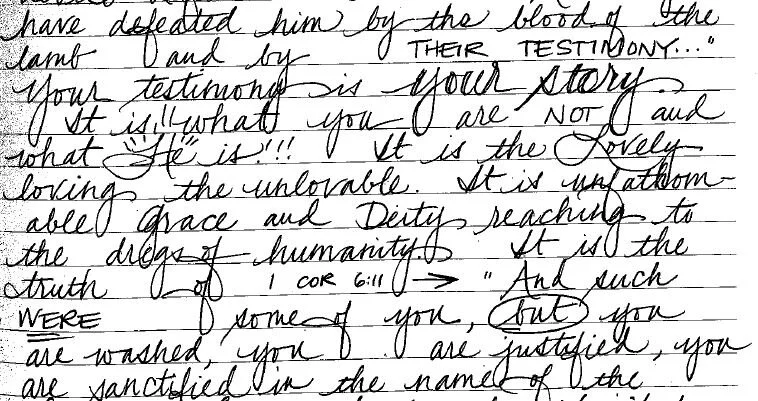 have defeated him by the blood of the
lamb and by THEIR TESTIMONY..."
Your testimony is your story.
It is "what you are NOT and
what "He" is!!! It is the Lovely
loving the unlovable. It is unfathom-
able Grace and Deity reaching to
the dregs of humanity. It is the
truth of 1 COR 6:11 → "And such
WERE some of you, but you
are washed, you are justified, you
are sanctified in the name of the